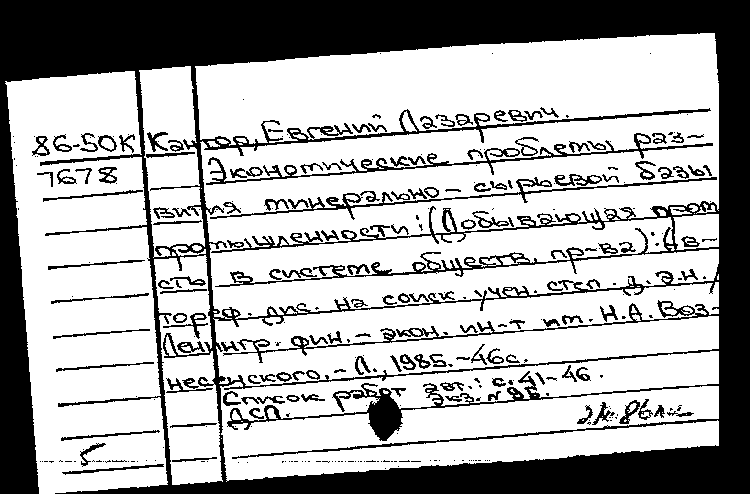 86-50К Кантор, Евгений Лазаревич.
7678 Экономические проблемы раз-
вития минерально-сырьевой базы
промышленности: (Добывающая пром
сть в системе обществ. пр-ва): (Ав-
тореф. дис. на соиск. учен. степ. д. э.н./
Ленингр. фин.-экон. ин-т им. Н.А. Воз-
несенского. - Л., 1985. - 46с.
Список работ авт.: с. 41-46.
ДСП. Экз. №
5